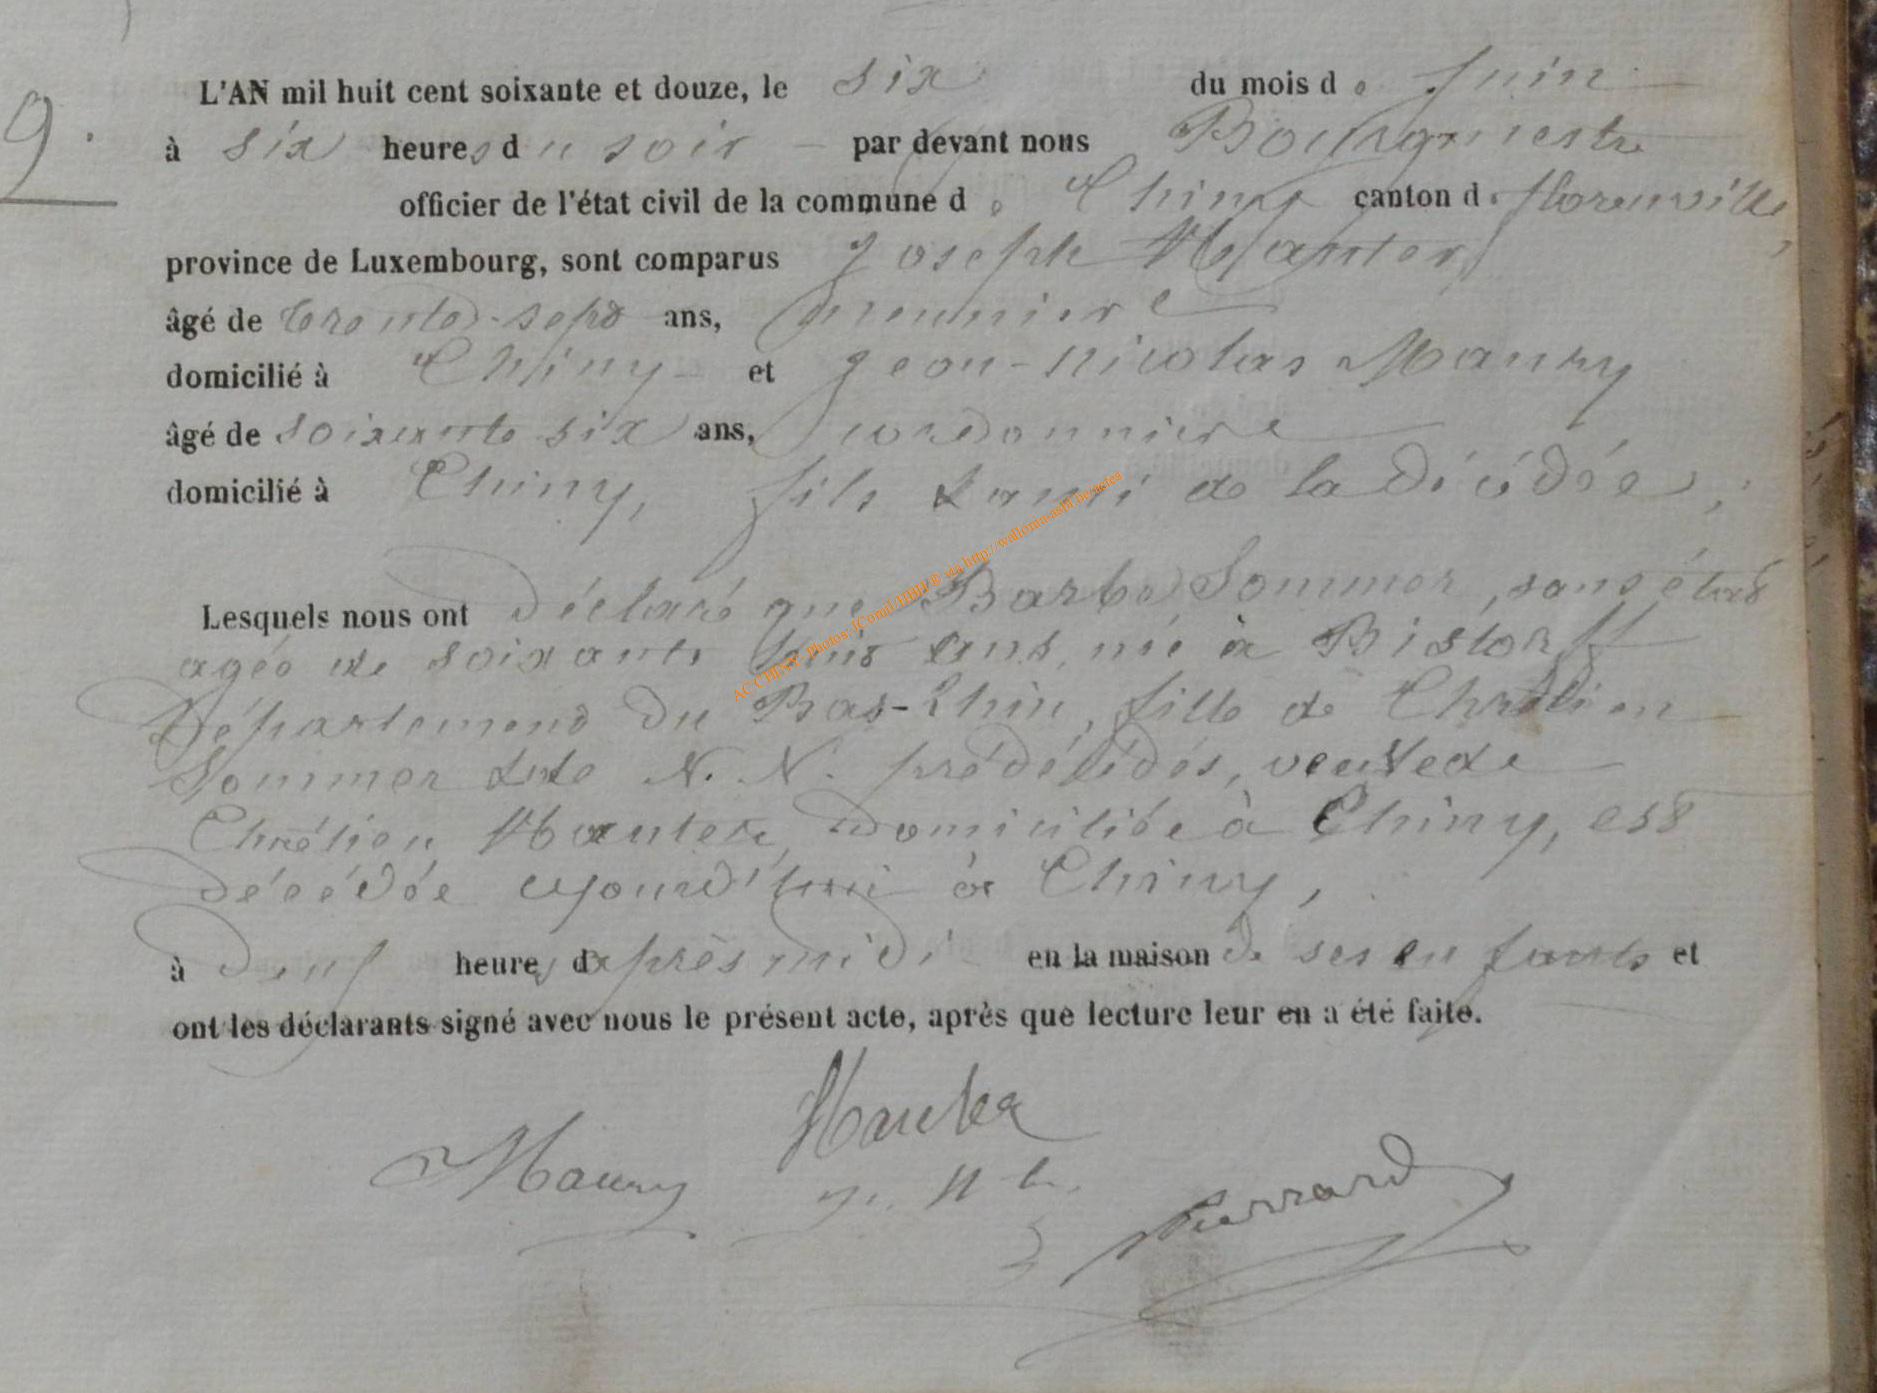 9.
L'AN mil huit cent soixante et douze, le six du mois de Juin
à six heures du soir par devant nous Bourgmestre
officier de l'état civil de la commune de Chiny canton de florenville,
province de Luxembourg, sont comparus Joseph Hauter,
âgé de trente-sept ans, meunier
domicilié à Chiny et Jean-nicolas Maury
âgé de soixante six ans, cordonnier
domicilié à Chiny, fils & ami de la décédée,
Lesquels nous ont déclaré que Barbe Sommer, sans état
agée de soixante huit ans, née à Bistorff
Département du Bas-Rhin, fille de Chrétien
Sommer & de N. N. prédécédés, veuve de
Chrétien Hauter, domiciliée à Chiny, est
décédée ajourd'hui à Chiny,
à deux heures d'après midi en la maison de ses enfants et
ont les déclarants signé avec nous le présent acte, après que lecture leur en a été faite.
Hauter
Maury
Pierrard
AC CHINY - Photos: JComil/HBH ® via http://wallonia-asbl.be/actes